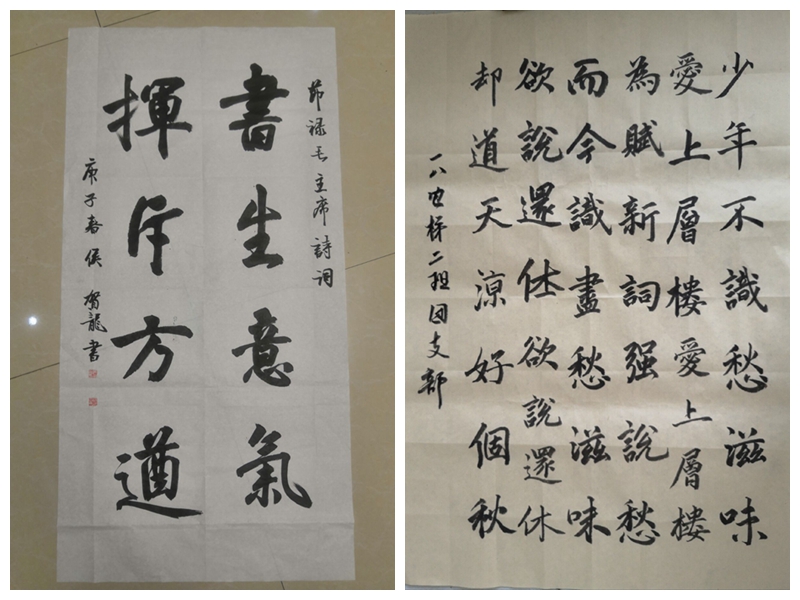 節禄毛主席詩词
書生意氣
揮斥方遒
庚子春侯賀龍書
少年不識愁滋味
愛上層楼愛上層楼
為賦新詞强說愁
而今識盡愁滋味
欲說還休欲說還休
却道天涼好個秋
一八电梯二班团支部